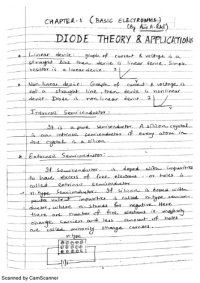 CHAPTER-1 (BASIC ELECTRONICS)
(By
DIODE THEORY & APPLICATIONS
* Linear device: graph of current & voltage is a
straight line then device is linear device. Simple
resistor is a linear device.
* Non linear device: Graph of current & voltage is
not a straight line, then device is nonlinear
device. Diode is non linear device.
Intrinsic Semiconductor:
It is a pure Semiconductor. A silicon crystal
is an intrinsic semiconductor if every atom in
the crystal is a silicon
* Extrinsic Semiconductor:
If semiconductor is doped with impurities
to have excess of free electrons or holes is
called extrinsic semiconductor
n-type Semiconductor: If silicon is doped with
penta valent impurities is called n-type semicon-
ductor, where n stands for negative. Here
there are number of free electrons is majority
charge carriers and less amount of holes
are called minority charge carriers.
n-type
Scanned by CamScanner